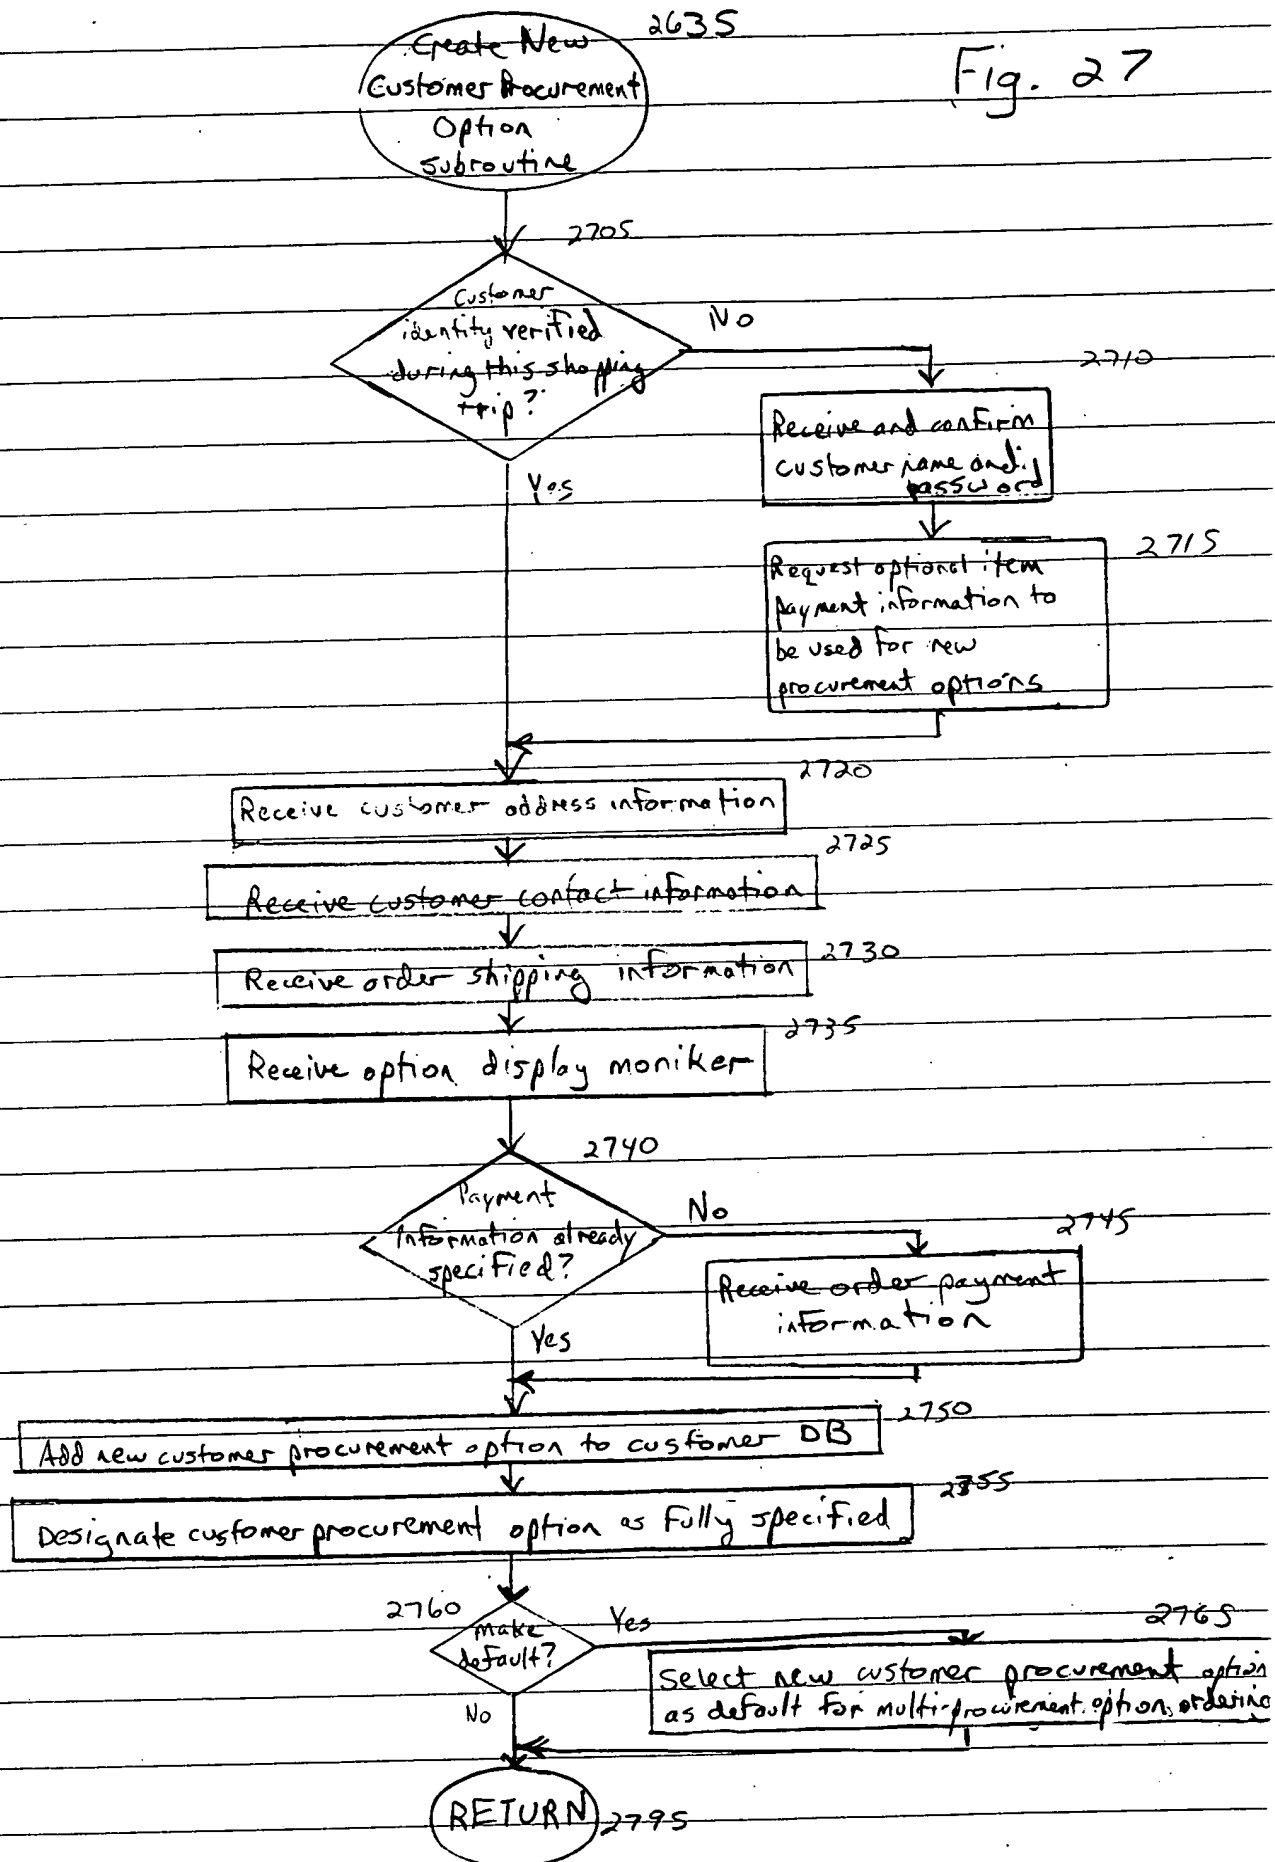 2635
Fig. 27
Create New
Customer Procurement
Option
subroutine
2705
Customer
identity verified
during this shopping
trip?
No
Yes
2710
Receive and confirm
customer name and
password
2715
Request optional item
payment information to
be used for new
procurement options
2720
Receive customer address information
2725
Receive customer contact information
2730
Receive order shipping information
2735
Receive option display moniker
2740
Payment
Information already
specified?
No
Yes
2745
Receive order payment
information
2750
Add new customer procurement option to customer DB
2755
Designate customer procurement option as fully specified
2760
make
default?
Yes
No
2765
Select new customer procurement option
as default for multi-procurement option ordering
RETURN
2795